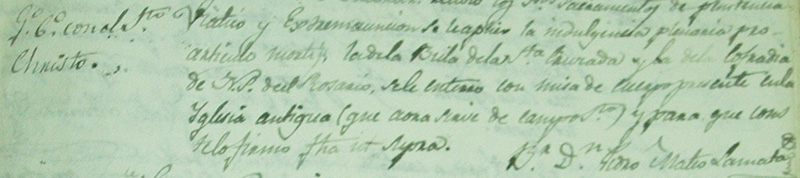 Sacramentos de penitencia
Viatico y Extremauncion se le aplicó la indulgencia plenaria pro
articulo mortis, la de la Bula de la Sta Cruzada y la de la Cofradia
de N. S. del Rosario, se le enterró con misa de cuerpo presente en la
Yglesia antigua (que aora sirve de campo Sto) y para que cons
te lo firmo fha ut supra.
Christo.
Dn Mateo Lamata